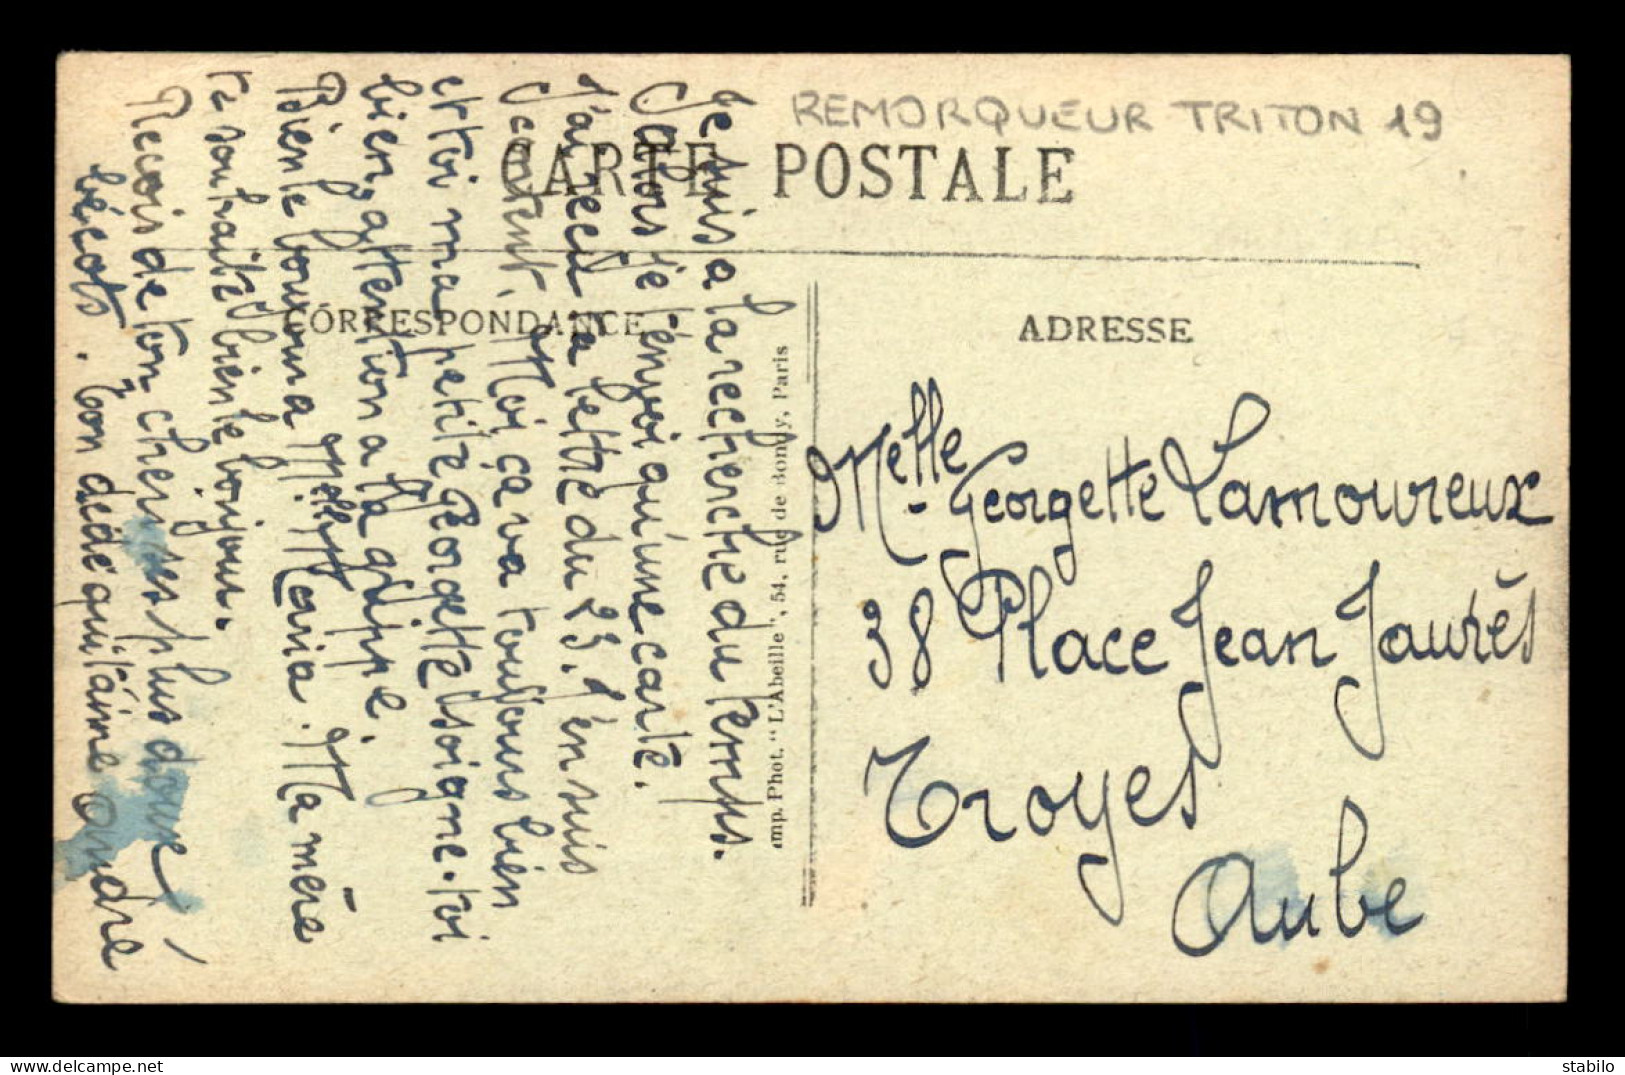 REMORQUEUR TRITON 19
CARTE POSTALE
CORRESPONDANCE
ADRESSE
Imp. Phot. "L'Abeille", 54, rue de Bondy, Paris
Melle Georgette Lamoureux
38 Place Jean Jaurès
Troyes
Aube
Je suis a la recherche du temps.
Alors je t'envoi qu'une carte.
J'ai reçu ta lettre du 23. J'en suis
content. Moi ça va toujours bien
et toi ma petite Georgette soigne-toi
bien, attention a la grippe.
Bien le bonjour a Melle Maria. Ma mère
te souhaite bien le bonjour.
Recois de ton cheri ses plus doux
bécots. Ton dédé qui t'aime André
stabilo - delcampe.net